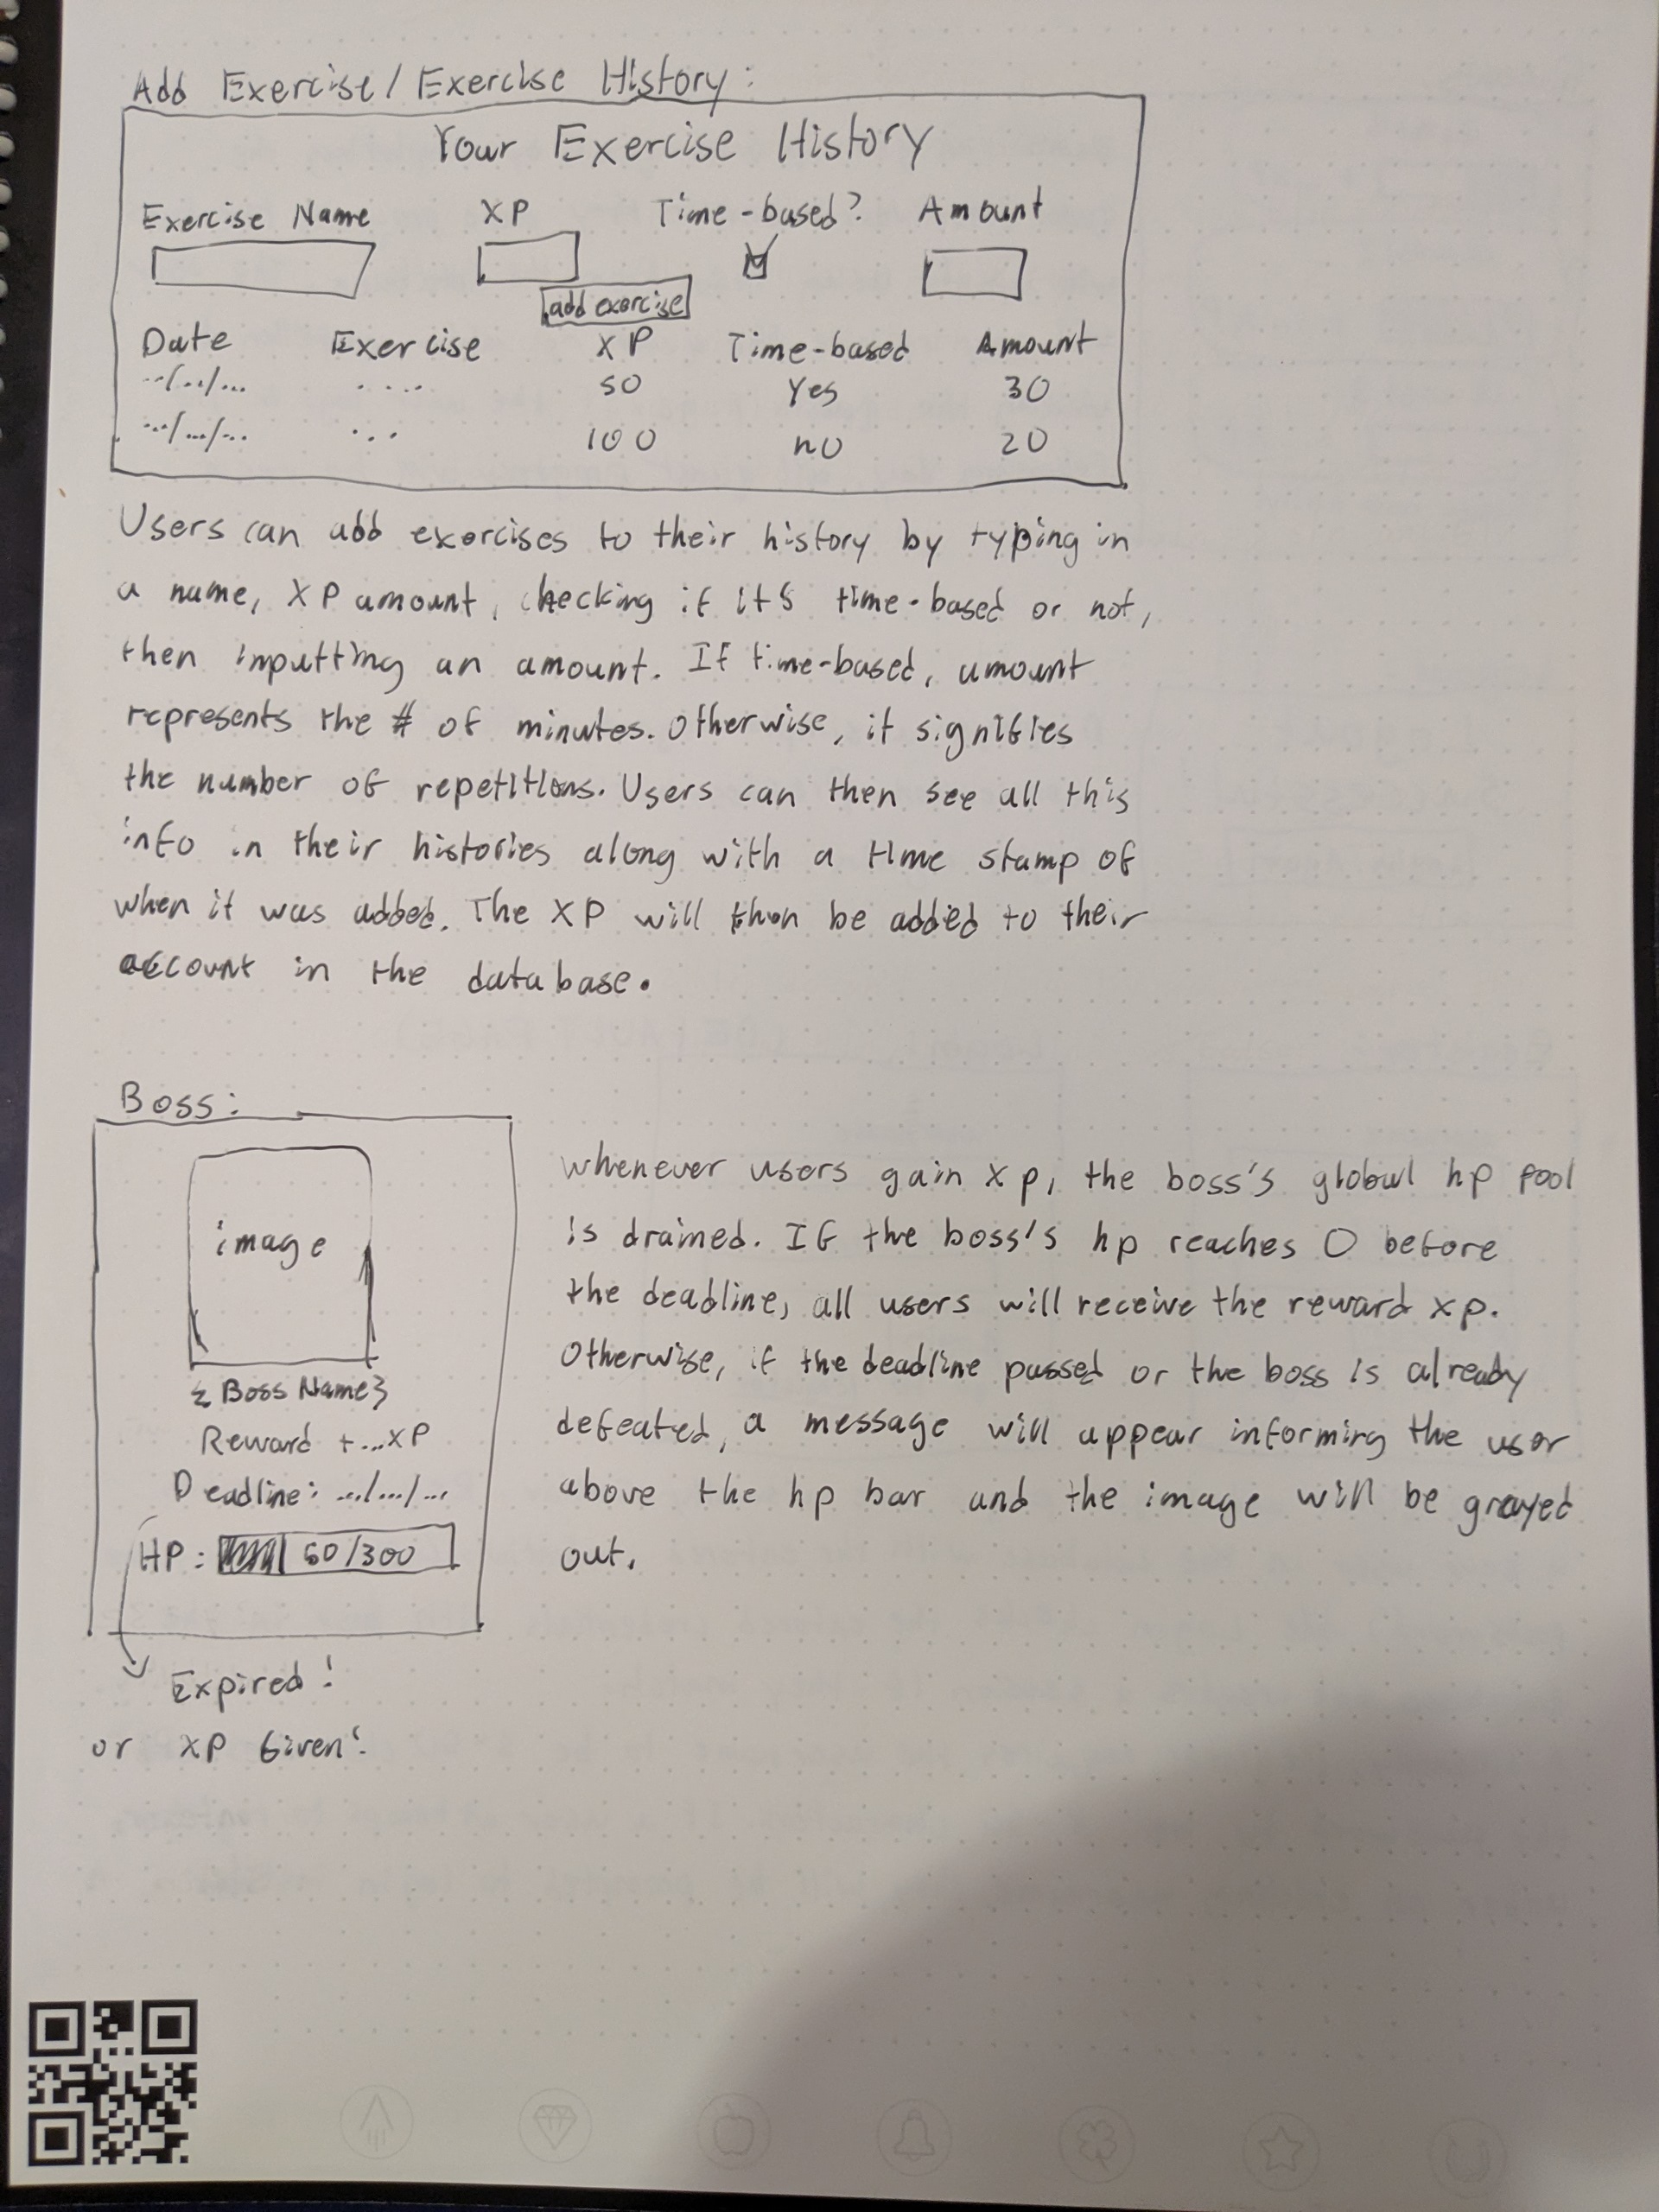 Add Exercise / Exercise History:
Your Exercise History
Exercise Name XP Time-based? Amount
add exercise
Date Exercise XP Time-based Amount
../../... .... 50 Yes 30
.../.../... ... 100 no 20
Users can add exercises to their history by typing in
a name, XP amount, checking if its time-based or not,
then inputting an amount. If time-based, amount
represents the # of minutes. Otherwise, it signifies
the number of repetitions. Users can then see all this
info in their histories along with a time stamp of
when it was added. The XP will then be added to their
account in the database.
Boss:
image
{Boss Name}
Reward +...XP
Deadline: .../.../...
HP: 60/300
Expired!
or XP Given!
whenever users gain xp, the boss's global hp pool
is drained. If the boss's hp reaches 0 before
the deadline, all users will receive the reward xp.
Otherwise, if the deadline passed or the boss is already
defeated, a message will appear informing the user
above the hp bar and the image will be grayed
out.